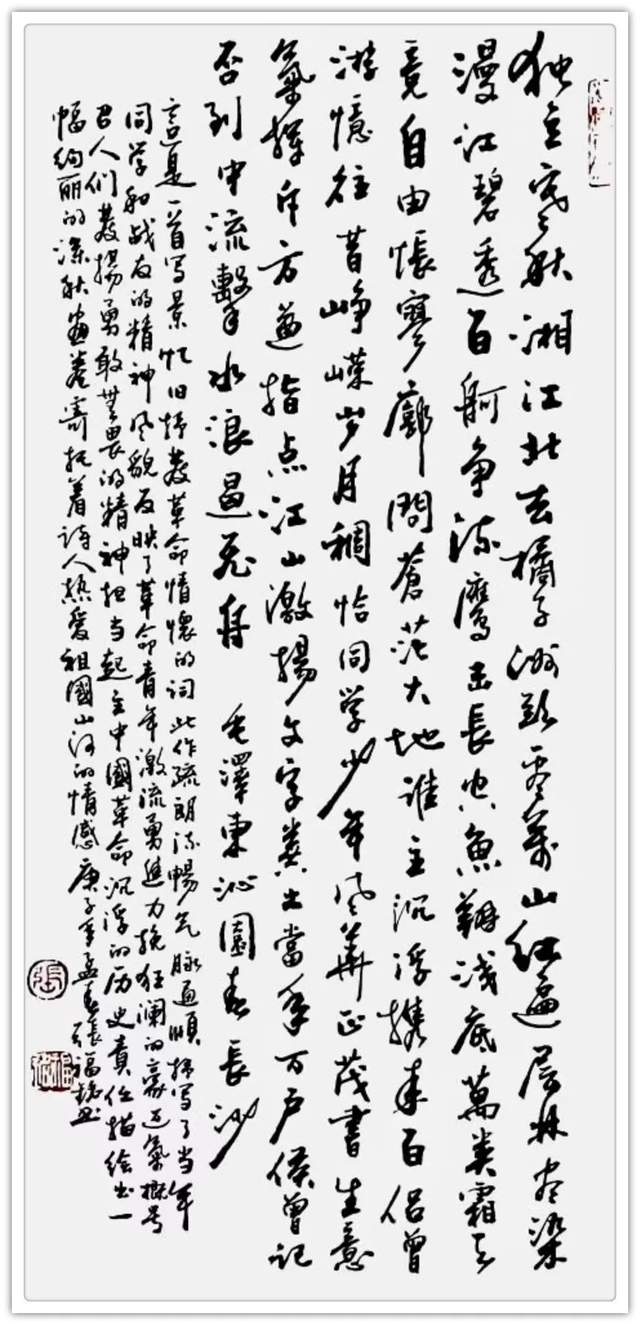 独立寒秋湘江北去橘子洲头看萬山红遍层林尽染
漫江碧透百舸争流鹰击長空魚翔浅底萬类霜天
竞自由怅寥廓問蒼茫大地谁主沉浮携来百侣曾
游憶往昔峥嵘岁月稠恰同学少年风華正茂書生意
氣挥斥方遒指点江山激揚文字粪土當年万户侯曾记
否到中流擊水浪遏飞舟 毛澤東沁園春長沙
这是一首写景忆旧抒發革命情懷的词此作疏朗流暢气脉通顺抒写了当年
同学和战友的精神风貌反映了革命青年激流勇進力挽狂澜的豪迈氣概号
召人们發揚勇敢無畏的精神担当起主中國革命沉浮的历史责任描绘出一
幅绚丽的深秋画卷寄托着诗人热爱祖國山河的情感庚子年孟春張福